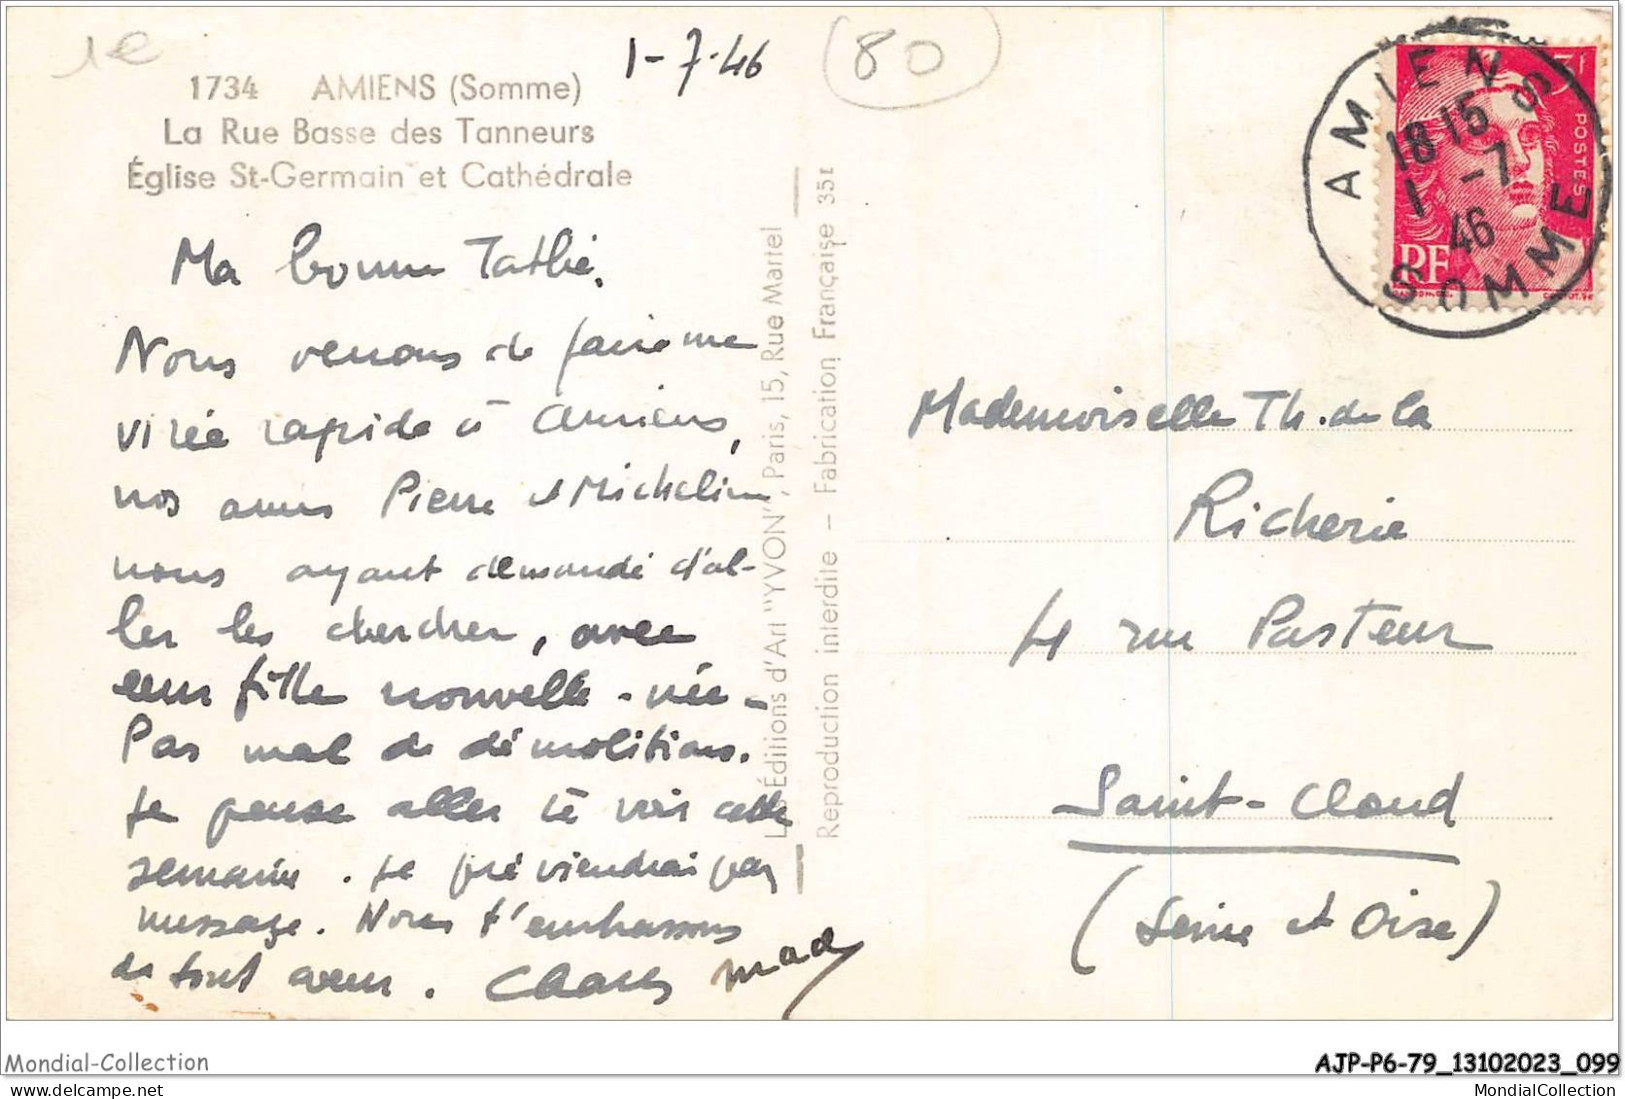 1e
1-7-46
80
1734 AMIENS (Somme)
La Rue Basse des Tanneurs
Église St-Germain et Cathédrale
Ma bonne Tathie,
Nous venons de faire une
virée rapide à Amiens,
nos amis Pierre et Micheline
nous ayant demandé d'al-
ler les chercher, avec
leur fille nouvelle-née -
Pas mal de démolitions.
Je pense aller te voir cette
semaine. Je préviendrai par
message. Nous t'embrassons
de tout cœur. Charles Mad
Les Éditions d'Art "YVON", Paris, 15, Rue Martel
Reproduction interdite — Fabrication Française 351
AMIENS
18 15
1 -7
46
SOMME
3F
POSTES
RF
Mademoiselle Th. de la
Richerie
4 rue Pasteur
Saint-Cloud
(Seine et Oise)
Mondial-Collection
AJP-P6-79_13102023_099
MondialCollection